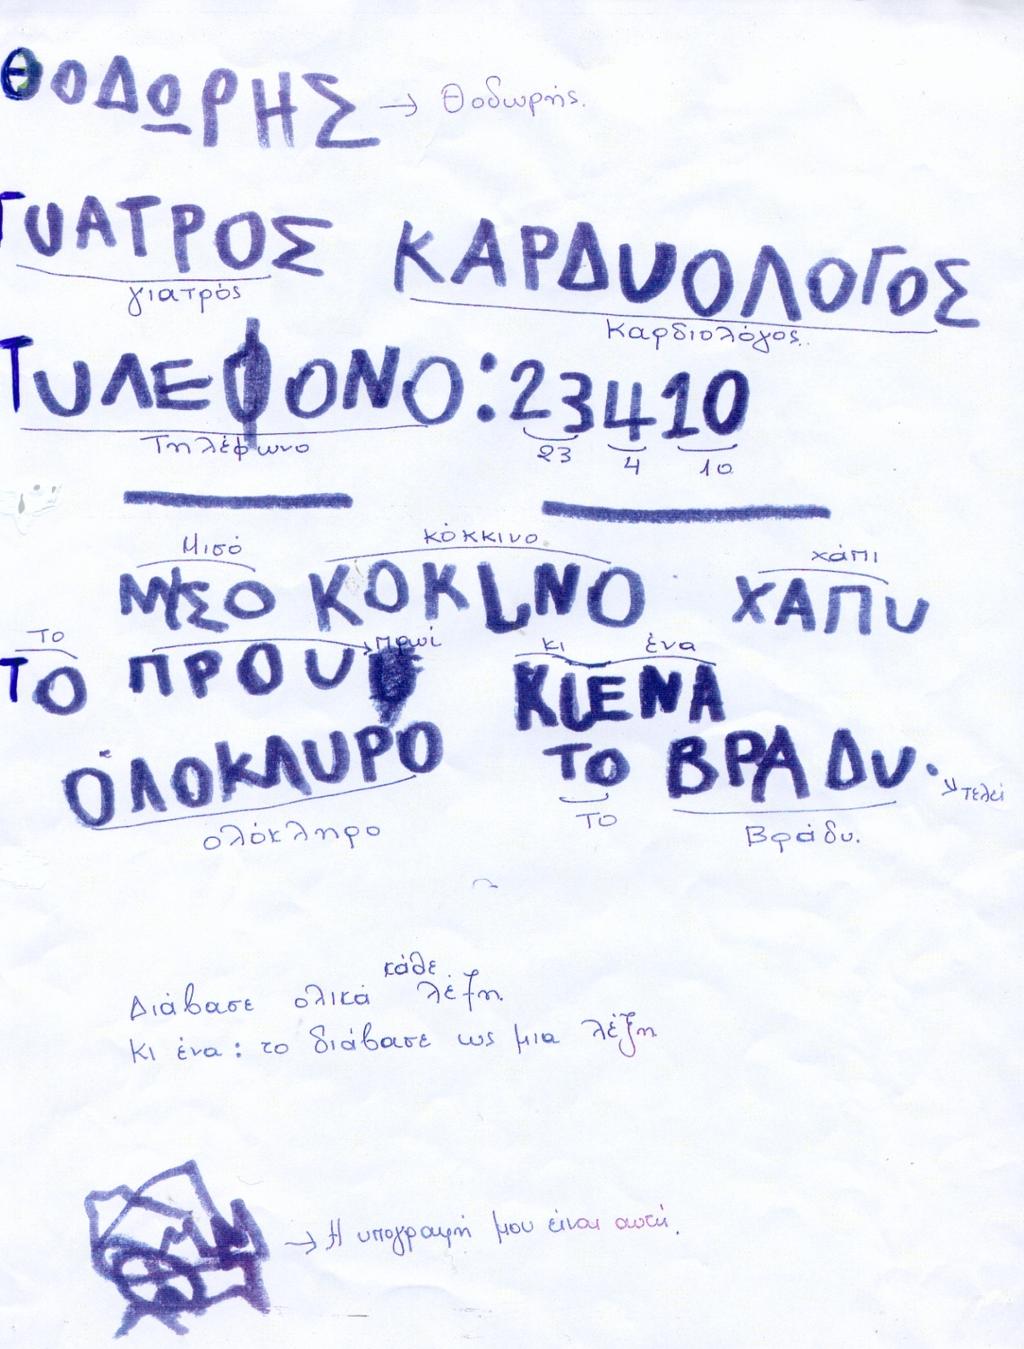 ΘΟΔΩΡΗΣ → Θοδωρής.
ΓΥΑΤΡΟΣ ΚΑΡΔΥΟΛΟΓΟΣ
γιατρός καρδιολόγος.
ΤΥΛΕΦΟΝΟ: 23410
Τηλέφωνο 23 4 10
Μισό κόκκινο χάπι
ΜΙΣΟ ΚΟΚΙΝΟ ΧΑΠΥ
Το πρωί κι ένα
ΤΟ ΠΡΟΥ ΚΙΕΝΑ
ΟΛΟΚΛΥΡΟ ΤΟ ΒΡΑΔΥ. → τελεί
ολόκληρο το Βράδυ.
κάθε
Διάβασε ολικά λέξη.
Κι ένα: το διάβασε ως μια λέξη
→ Η υπογραφή μου είναι αυτή.